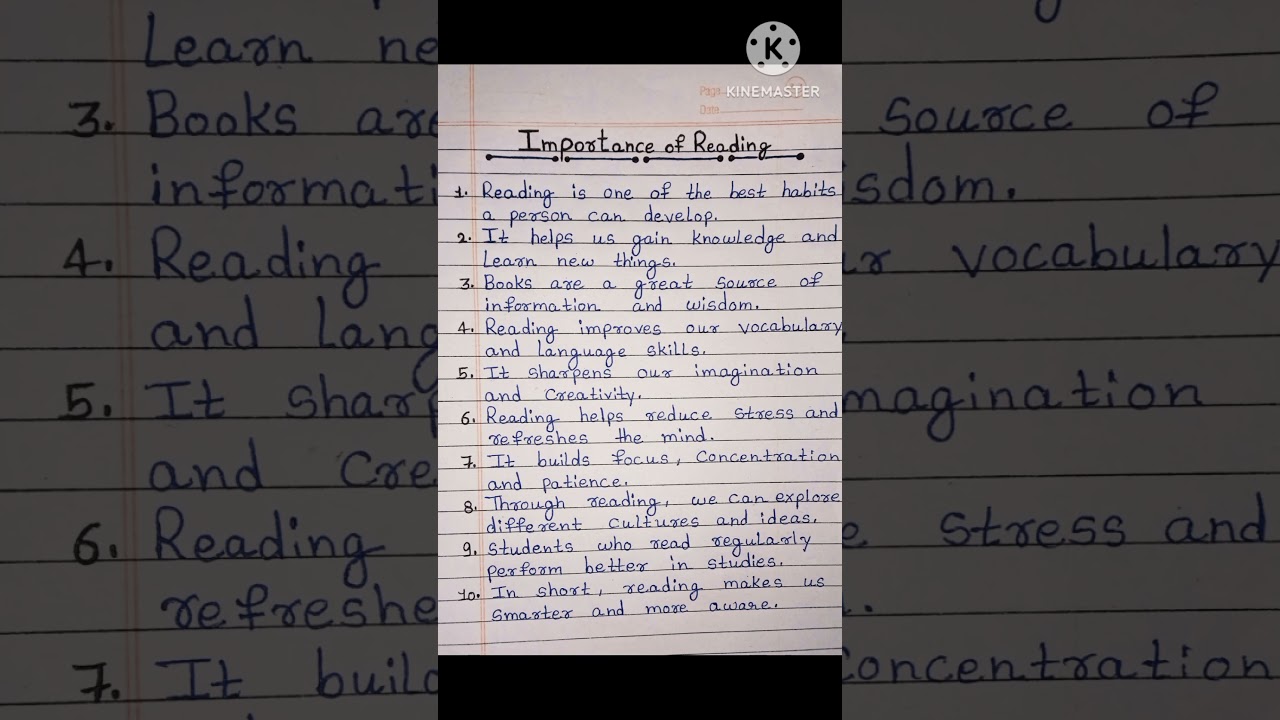 KINEMASTER
Page
Date
Importance of Reading
1. Reading is one of the best habits
a person can develop.
2. It helps us gain knowledge and
Learn new things.
3. Books are a great source of
information and wisdom.
4. Reading improves our vocabulary
and language skills.
5. It sharpens our imagination
and Creativity.
6. Reading helps reduce stress and
refreshes the mind.
7. It builds focus, Concentration
and patience.
8. Through reading, we can explore
different cultures and ideas.
9. Students who read regularly
perform better in studies.
10. In short, reading makes us
smarter and more aware.